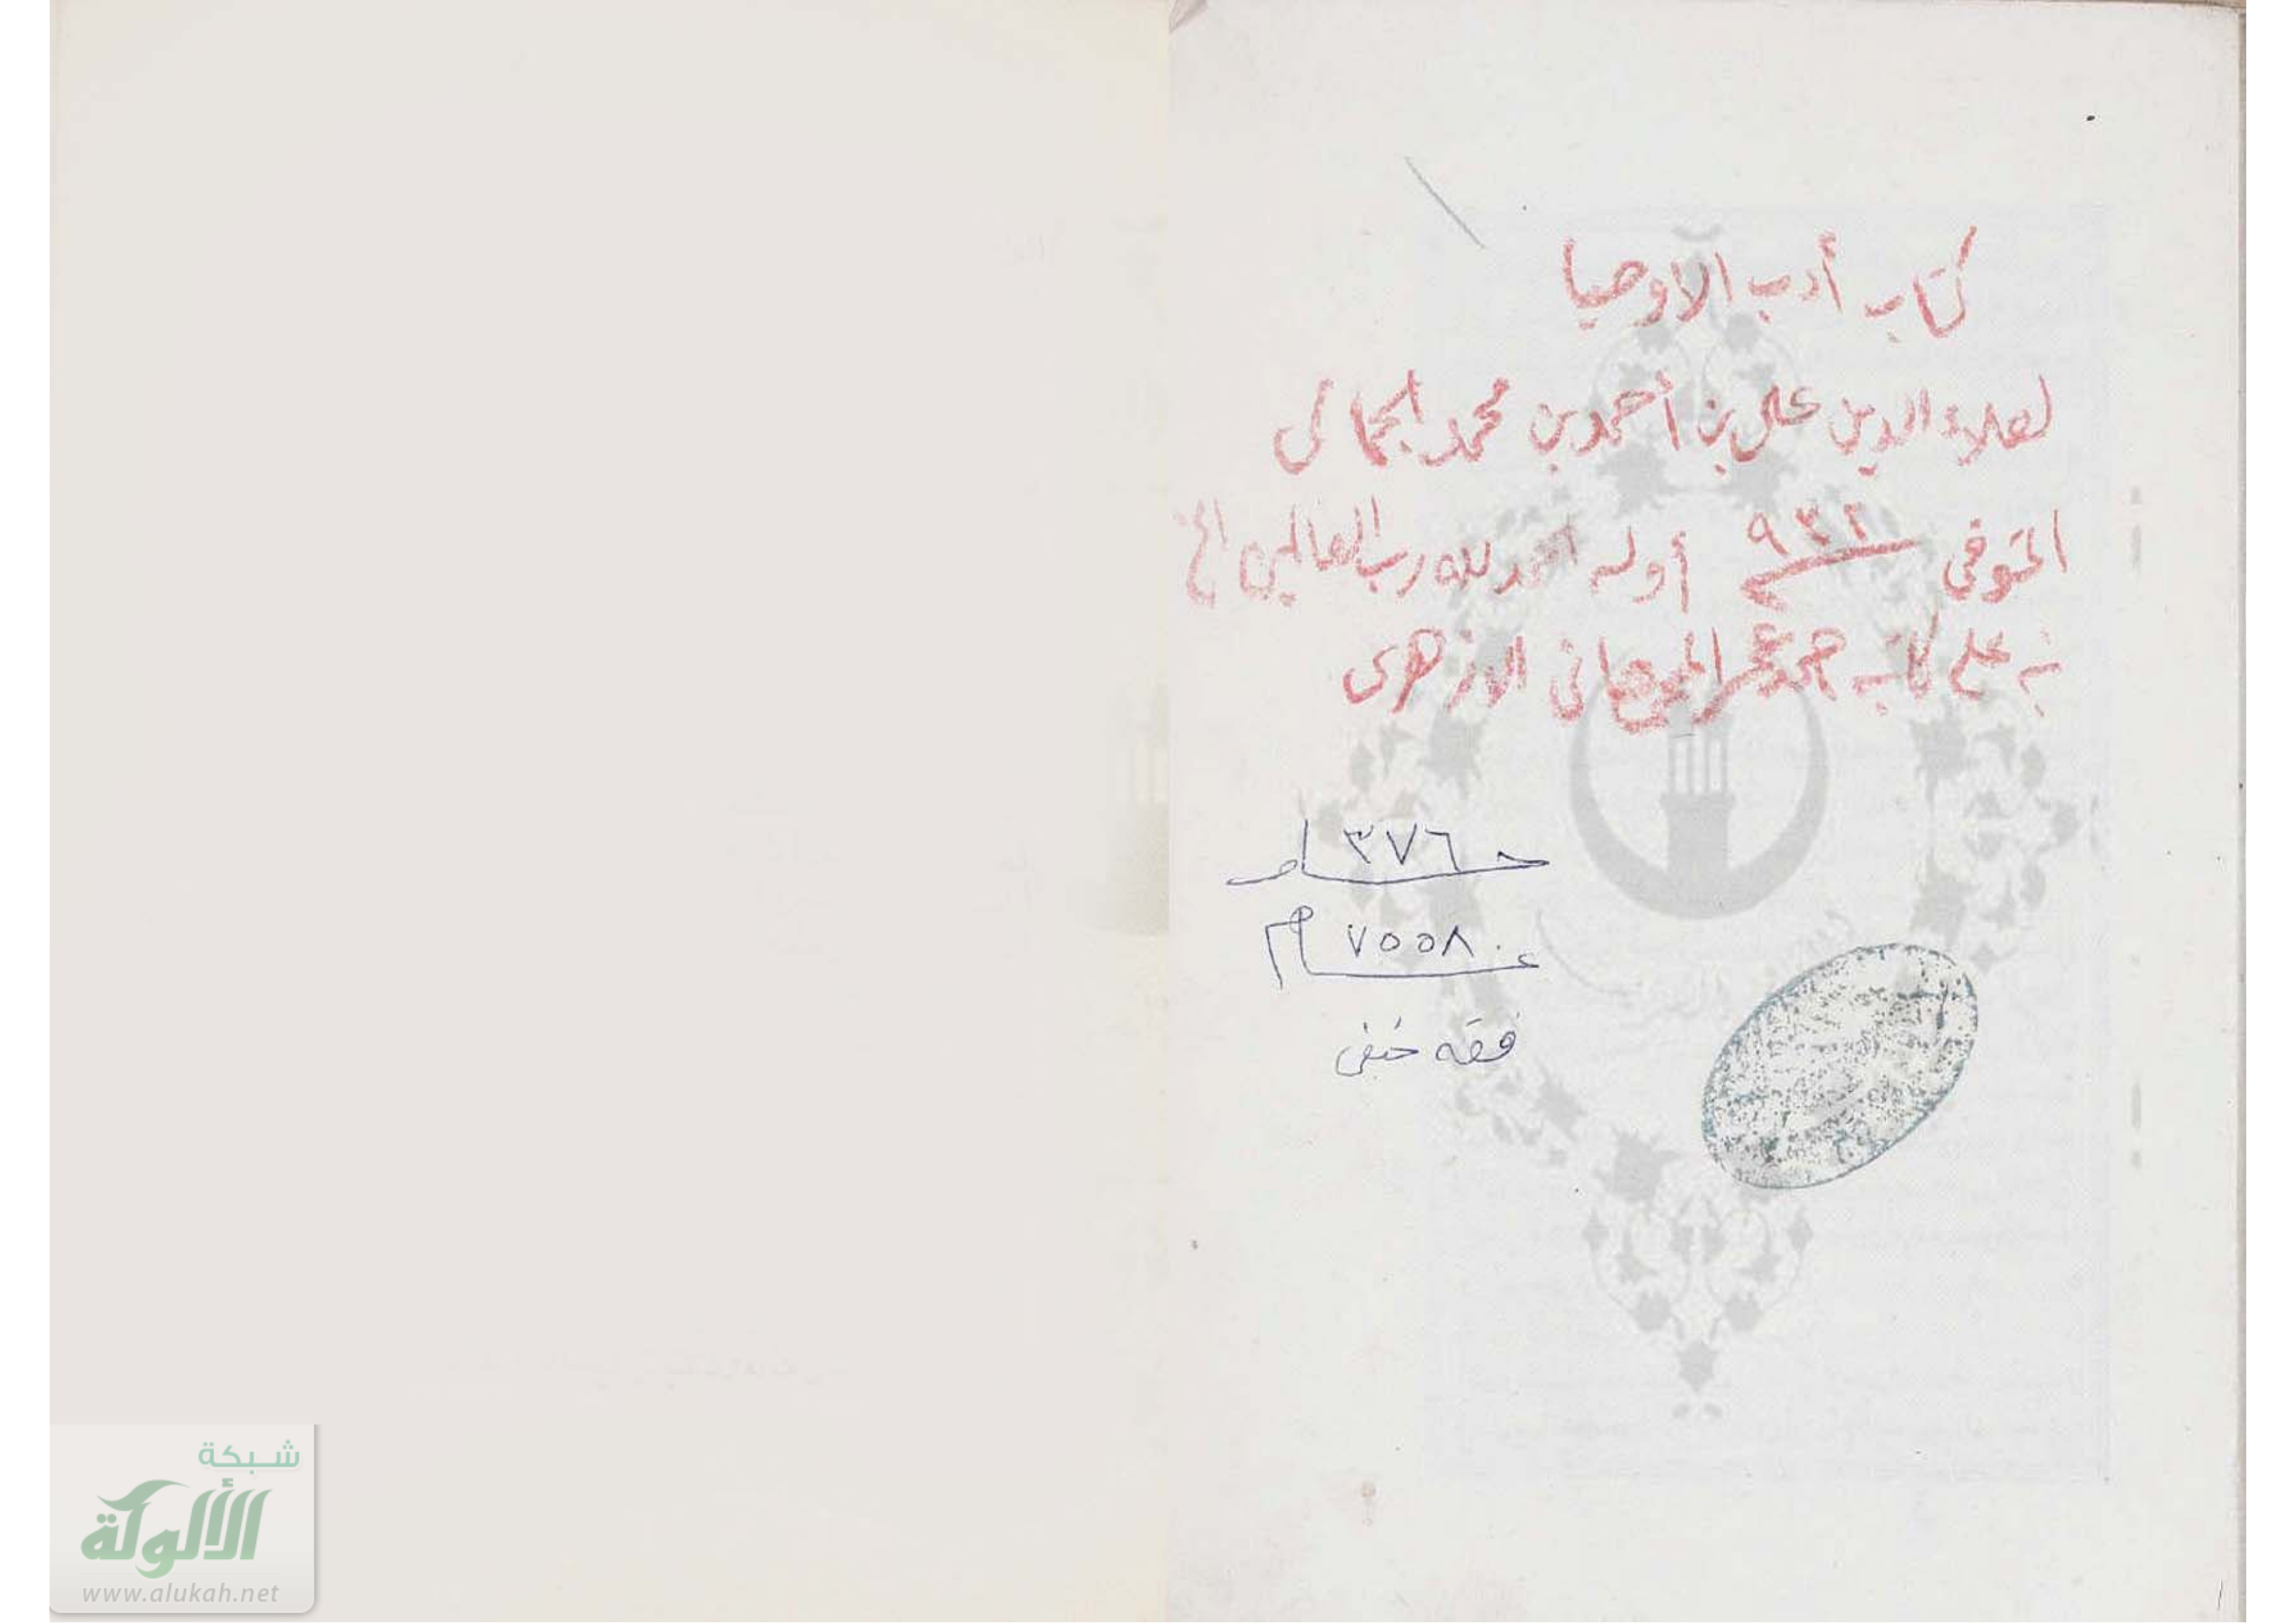 كتاب أدب الاوصيا
لعلاء الدين على بن أحمد بن محمد الجمالى
المتوفى ٩٣٢ أوله الحمد لله رب العالمين الخ
نبه على كاتبه محمد الازهرى
خاص ٣٧٦
عام ٧٥٥٨
فقه حنفى
شبكة
الألوكة
www.alukah.net